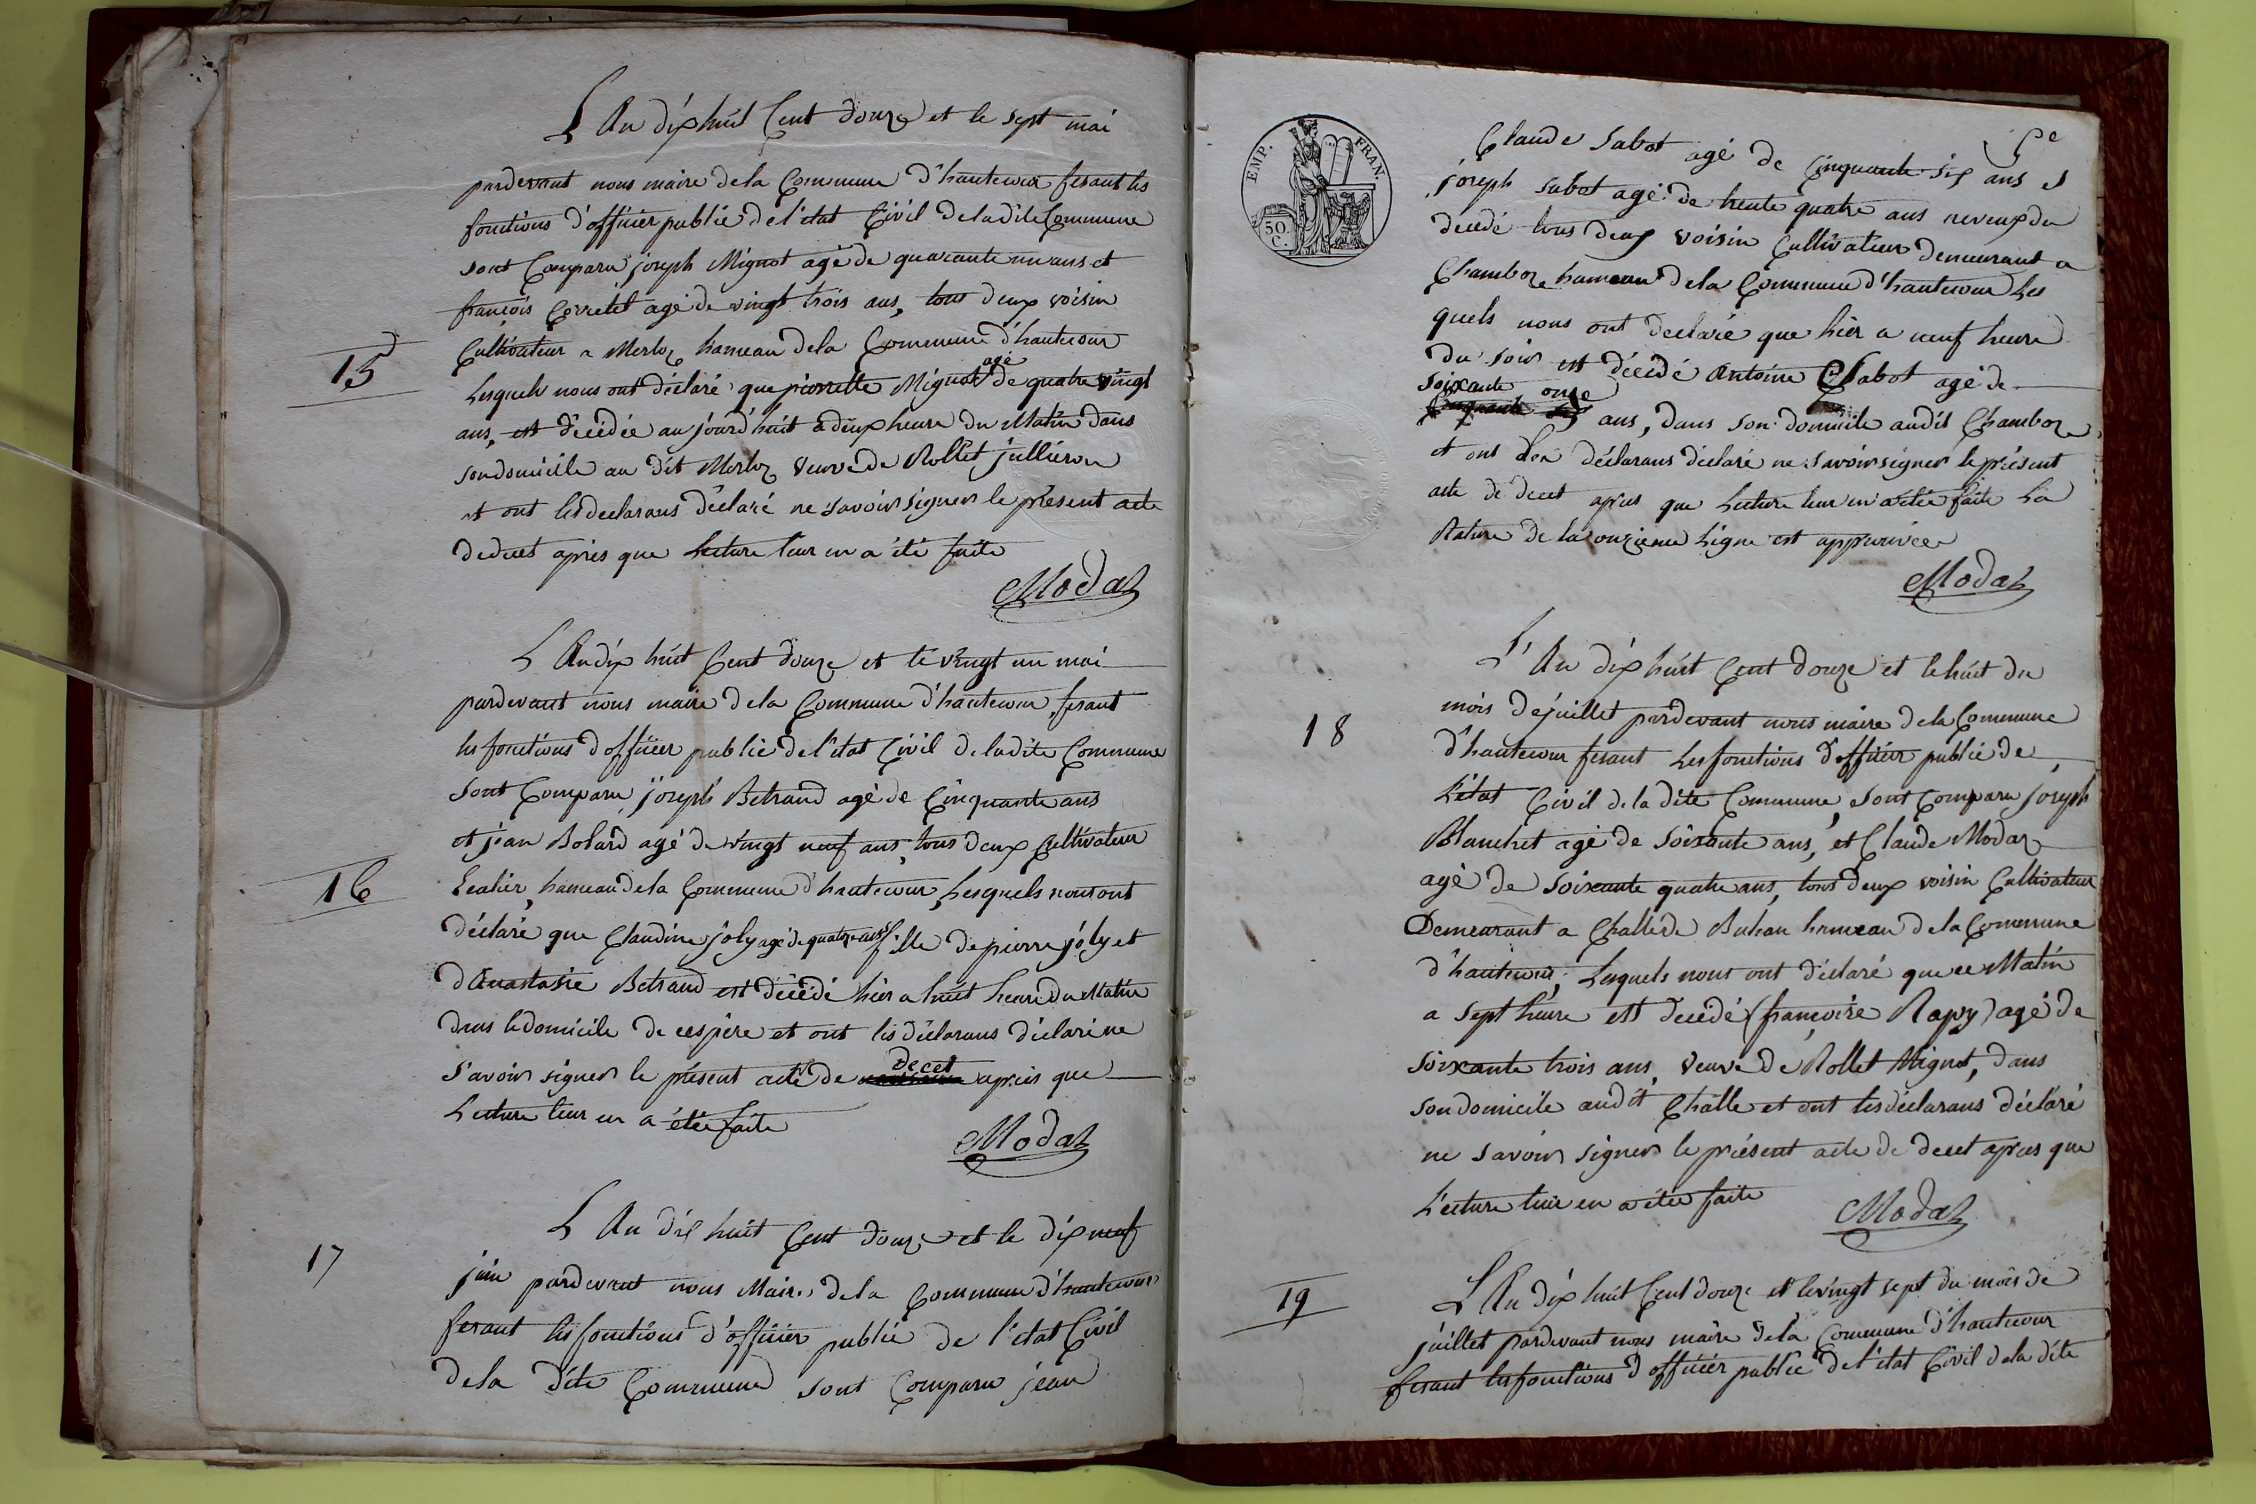 L'An dix huit Cent douze et le sept mai
pardevant nous maire dela Commune d'hautecour fesant les
fonctions d'officier public de l'état Civil deladite Commune
sont Comparu joseph Mignot agé de quarante un ans et
françois agé de vingt trois ans, tous deux voisin
15
Cultivateur a Merloz hameau dela Commune d'hautecour
agé
Lesquels nous ont déclaré que pierrette Mignot de quatre vingt
ans, est décédée aujourd'huit a deux heure du Matin dans
son domicile au dit Merloz veuve de Rollet jullieron
et ont les declarans déclaré ne savoir signer le présent acte
de decet apries que Lecture leur en a été faite
Modaz
L'An dix huit Cent douze et le vingt un mai
pardevant nous maire dela Commune d'hautecour, fesant
les fonctions d'officier public de l'état Civil deladite Commune
sont Comparu joseph Betrand agé de Cinquante ans
et jean Bolard agé de vingt neuf ans, tous deux Cultivateur
16
hameau dela Commune d'hautecour, Lesquels nous ont
déclaré que Claudine joly agé de quatorze ans fille de pierre joly et
d'Anastasie Betrand est décédé hier a huit heure du Matin
dans le domicile de ces père et ont les déclarans déclaré ne
decet
savoir signer le présent acte de apries que
Lecture leur en a étée faite
Modaz
L'An dix huit Cent douze et le dix neuf
17
juin pardevant nous Maire dela Commune d'hautecour
fesant les fonctions d'officier public de l'état Civil
dela dite Commune sont Comparu jean
EMP. FRAN.
50. C.
Claude Sabot agé de Cinquante six ans et
joseph Sabot agé de trente quatre ans neveux du
decédé tous deux voisin Cultivateur demeurant a
Chamboz hameau dela Commune d'hautecour Les
quels nous ont declaré que hier a neuf heure
du soir est décédé Antoine Sabot agé de
soixante onze
Cinquante ans, dans son domicile audit Chamboz
et ont les déclarans déclaré ne savoir signer le présent
acte de decet aprus que Lecture leur en a étée faite La
Rature de la onzieme Ligne est approuvée
Modaz
L'An dix huit Cent douze et le huit du
18
mois de juillet pardevant nous maire dela Commune
d'hautecour fesant Les fonctions d'officier public de
L'état Civil dela dite Commune, sont Comparu joseph
Blanchet agé de soixante ans, et Claude Modaz
agé de soixante quatre ans, tous deux voisin Cultivateur
Demeurant a Challe de Buhan hameau dela Commune
d'hautecour, Lesquels nous ont déclaré que ce Matin
a sept heure est decédé (françoise Rapy) agé de
soixante trois ans, veuve de Rollet Mignot, dans
son domicile audit Challe et ont les déclarans déclaré
ne savoir signer le présent acte de decet aprés que
Lecture leur en a étée faite
Modaz
19
L'An dix huit Cent douze et le vingt sept du mois de
juillet pardevant nous maire dela Commune d'hautecour
fesant les fonctions d'officier public de l'état Civil dela dite